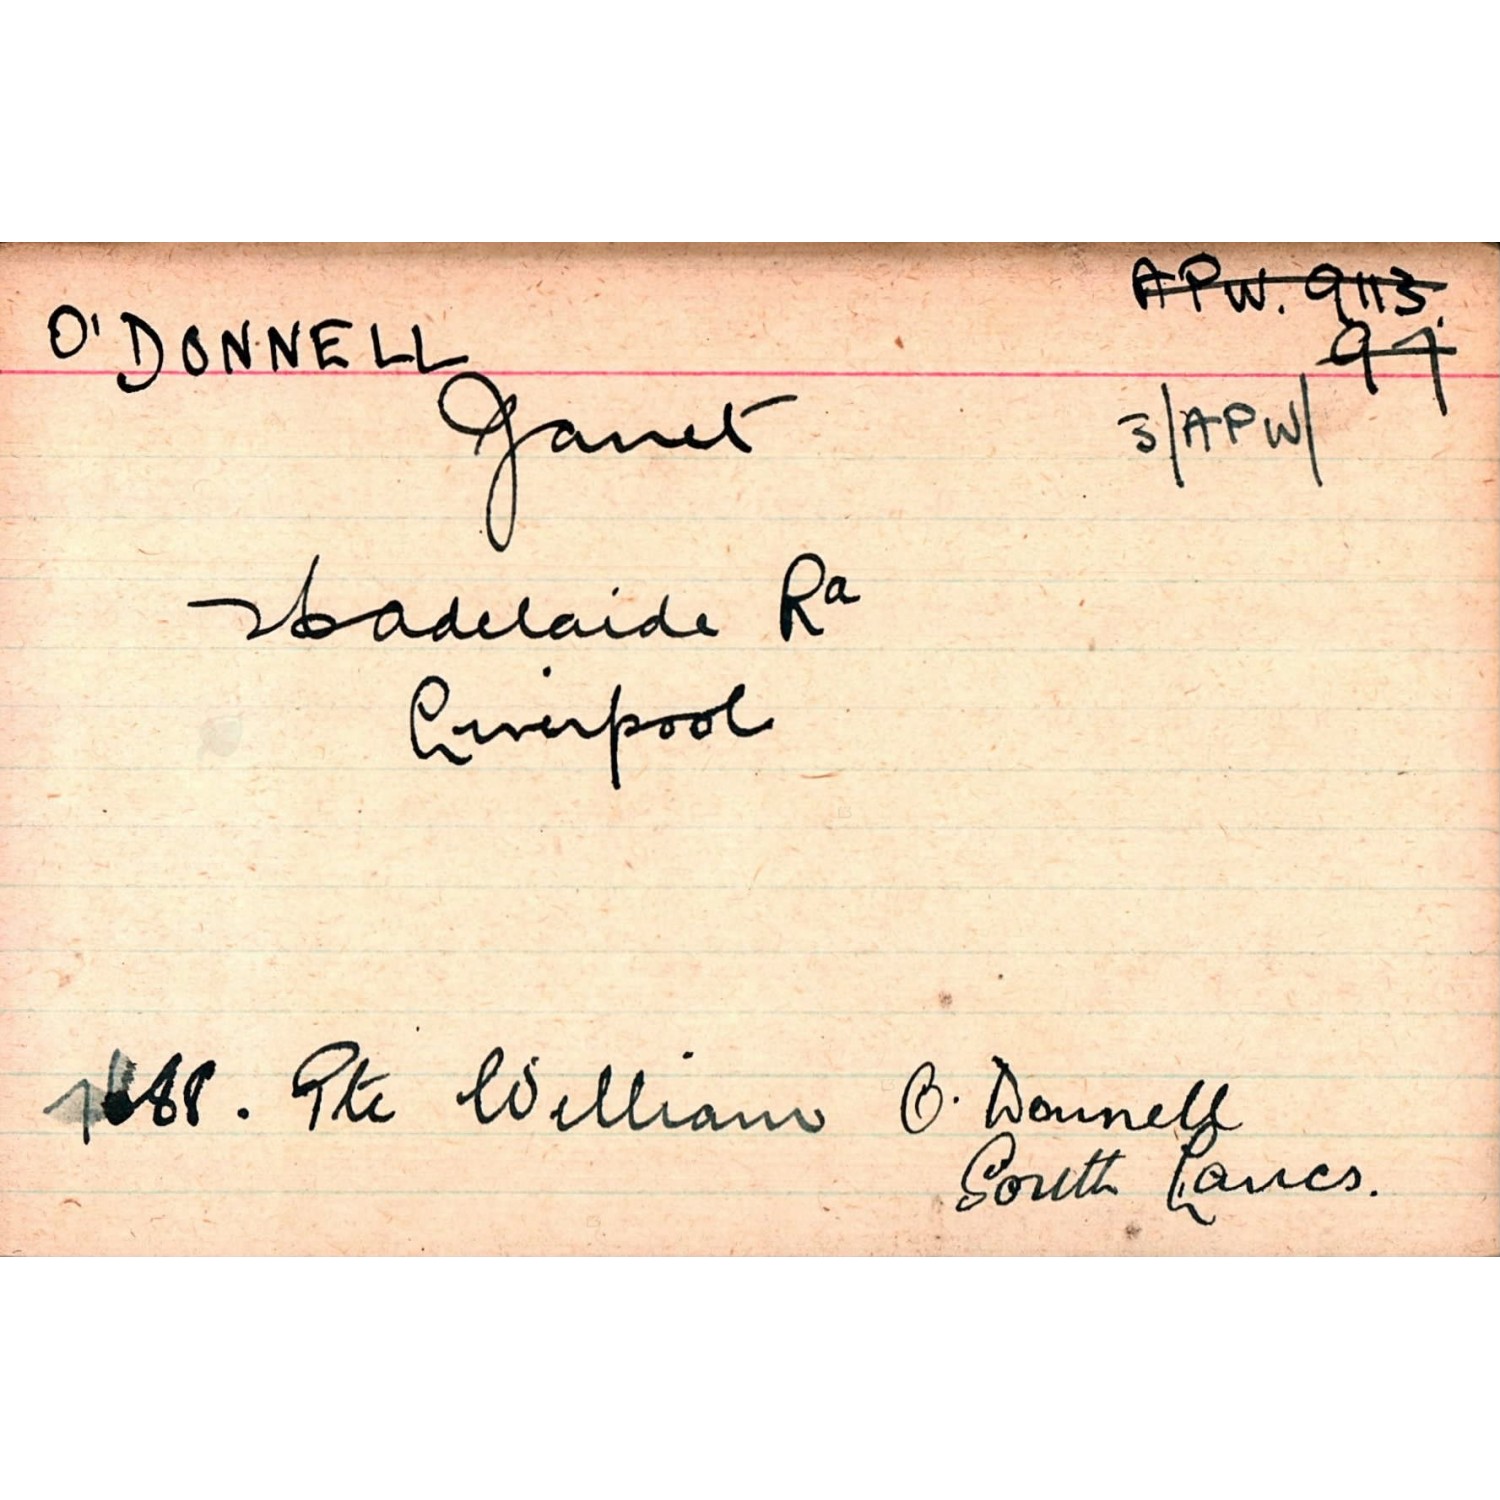 APW. 9113.
O'DONNELL 94
Janet 3/APW/
26 Adelaide Rd
Liverpool
88. Pte William O. Donnell
South Lancs.